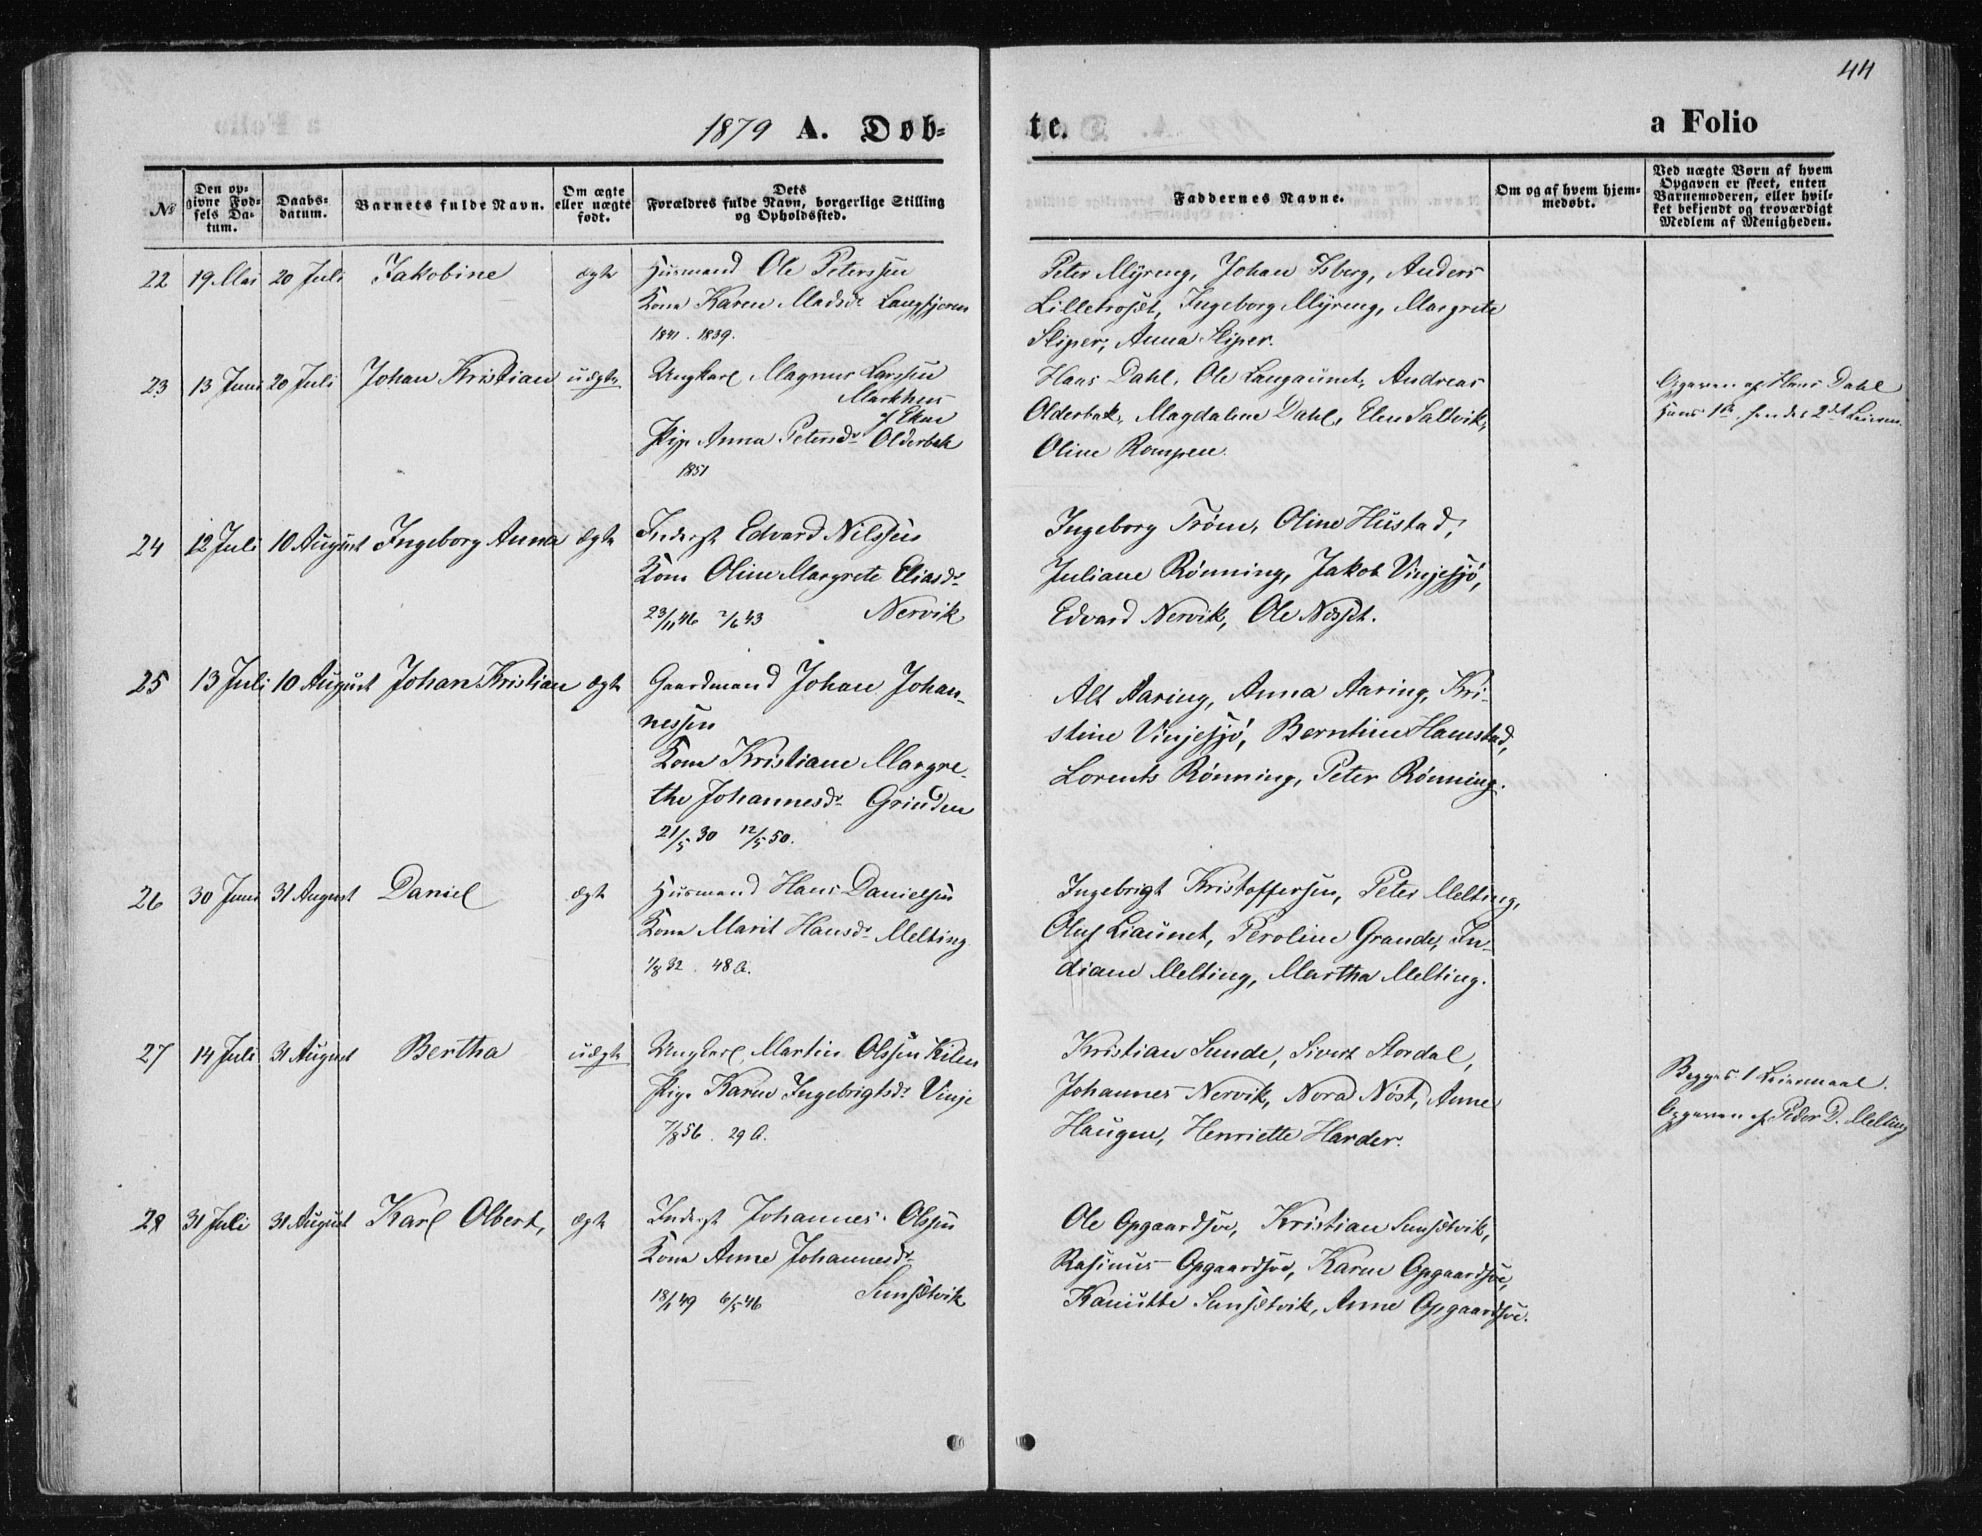 44
1879 A. Døb-
te.
a Folio
№
Den op-
givne Fød-
sels Da-
tum.
Daabs-
datum.
Barnets fulde Navn.
Om ægte
eller uægte
født.
Dets
Forældres fulde Navn, borgerlige Stilling
og Opholdssted.
Faddernes Navne.
Om og af hvem hjem-
medøbt.
Ved uægte Børn af hvem
Opgaven er skeet, enten
Barnemoderen, eller hvil-
ket bekjendt og troværdigt
Medlem af Menigheden.
22 19 Mai 20 Juli Jakobine ægte Husmand Ole Peterssen
Kone Karen Madsdr
1841. 1839.
Peter Myreng, Johan Isberg, Anders
Lilletroset, Ingeborg Myreng, Margrete
Sliper, Anna Sliper.
23 13 Juni 20 Juli Johan Kristian uægte Ungkarl Magnus Larssen
Markhus
Pige Anna Petersdr Olderbak
1851
Hans Dahl, Ole Langaunet, Andreas
Olderbak, Magdalene Dahl, Elen Saltvik,
Oline Rompen.
Opgaven af Hans Dahl
Hans 1ste, hendes 2det Leierm.
24 12 Juli 10 August Ingeborg Anna ægte Inderst Edvard Nilssen
Kone Oline Margrete Eliasdr
23/11 46 2/6 43 Nervik
Ingeborg Trøen, Oline Hustad,
Juliane Rønning, Jakob Vinjesjø,
Edvard Nervik, Ole Nesset.
25 13 Juli 10 August Johan Kristian ægte Gaardmand Johan Johan-
nessen
Kone Kristiane Margre-
the Johannesdr Grinden
21/5 30 12/5 50.
Alt Aaring, Anna Aaring, Kri-
stine Vinjesjø, Berntine Hamstad,
Lorents Rønning, Peter Rønning.
26 30 Juni 31 August Daniel ægte Husmand Hans Danielsen
Kone Marit Hansdr Melting
1/8 32. 48 A.
Ingebrigt Kristoffersen, Peter Melting,
Oluf Liaunet, Peroline Grande, In-
diane Melting, Martha Melting.
27 14 Juli 31 August Bertha uægte Ungkarl Martin Olssen Kilen
Pige Karen Ingebrigtsdr Vinje
7/8 56. 29 A.
Kristian Sunde, Sivert Stordal,
Johannes Nervik, Nora Nøst, Anne
Haugen, Henriette Harder.
Begges 1 Leiermaal.
Opgaven af Peder D. Melting
28 31 Juli 31 August Karl Olbert, ægte Inderst Johannes Olssen
Kone Anne Johannesdr
18/1 49 6/5 46 Sunsetvik
Ole Opgaardsøe, Kristian Sunsetvik,
Rasinus Opgaardsøe, Karen Opgaardsøe,
Kanutte Sunsetvik, Anne Opgaardsøe.